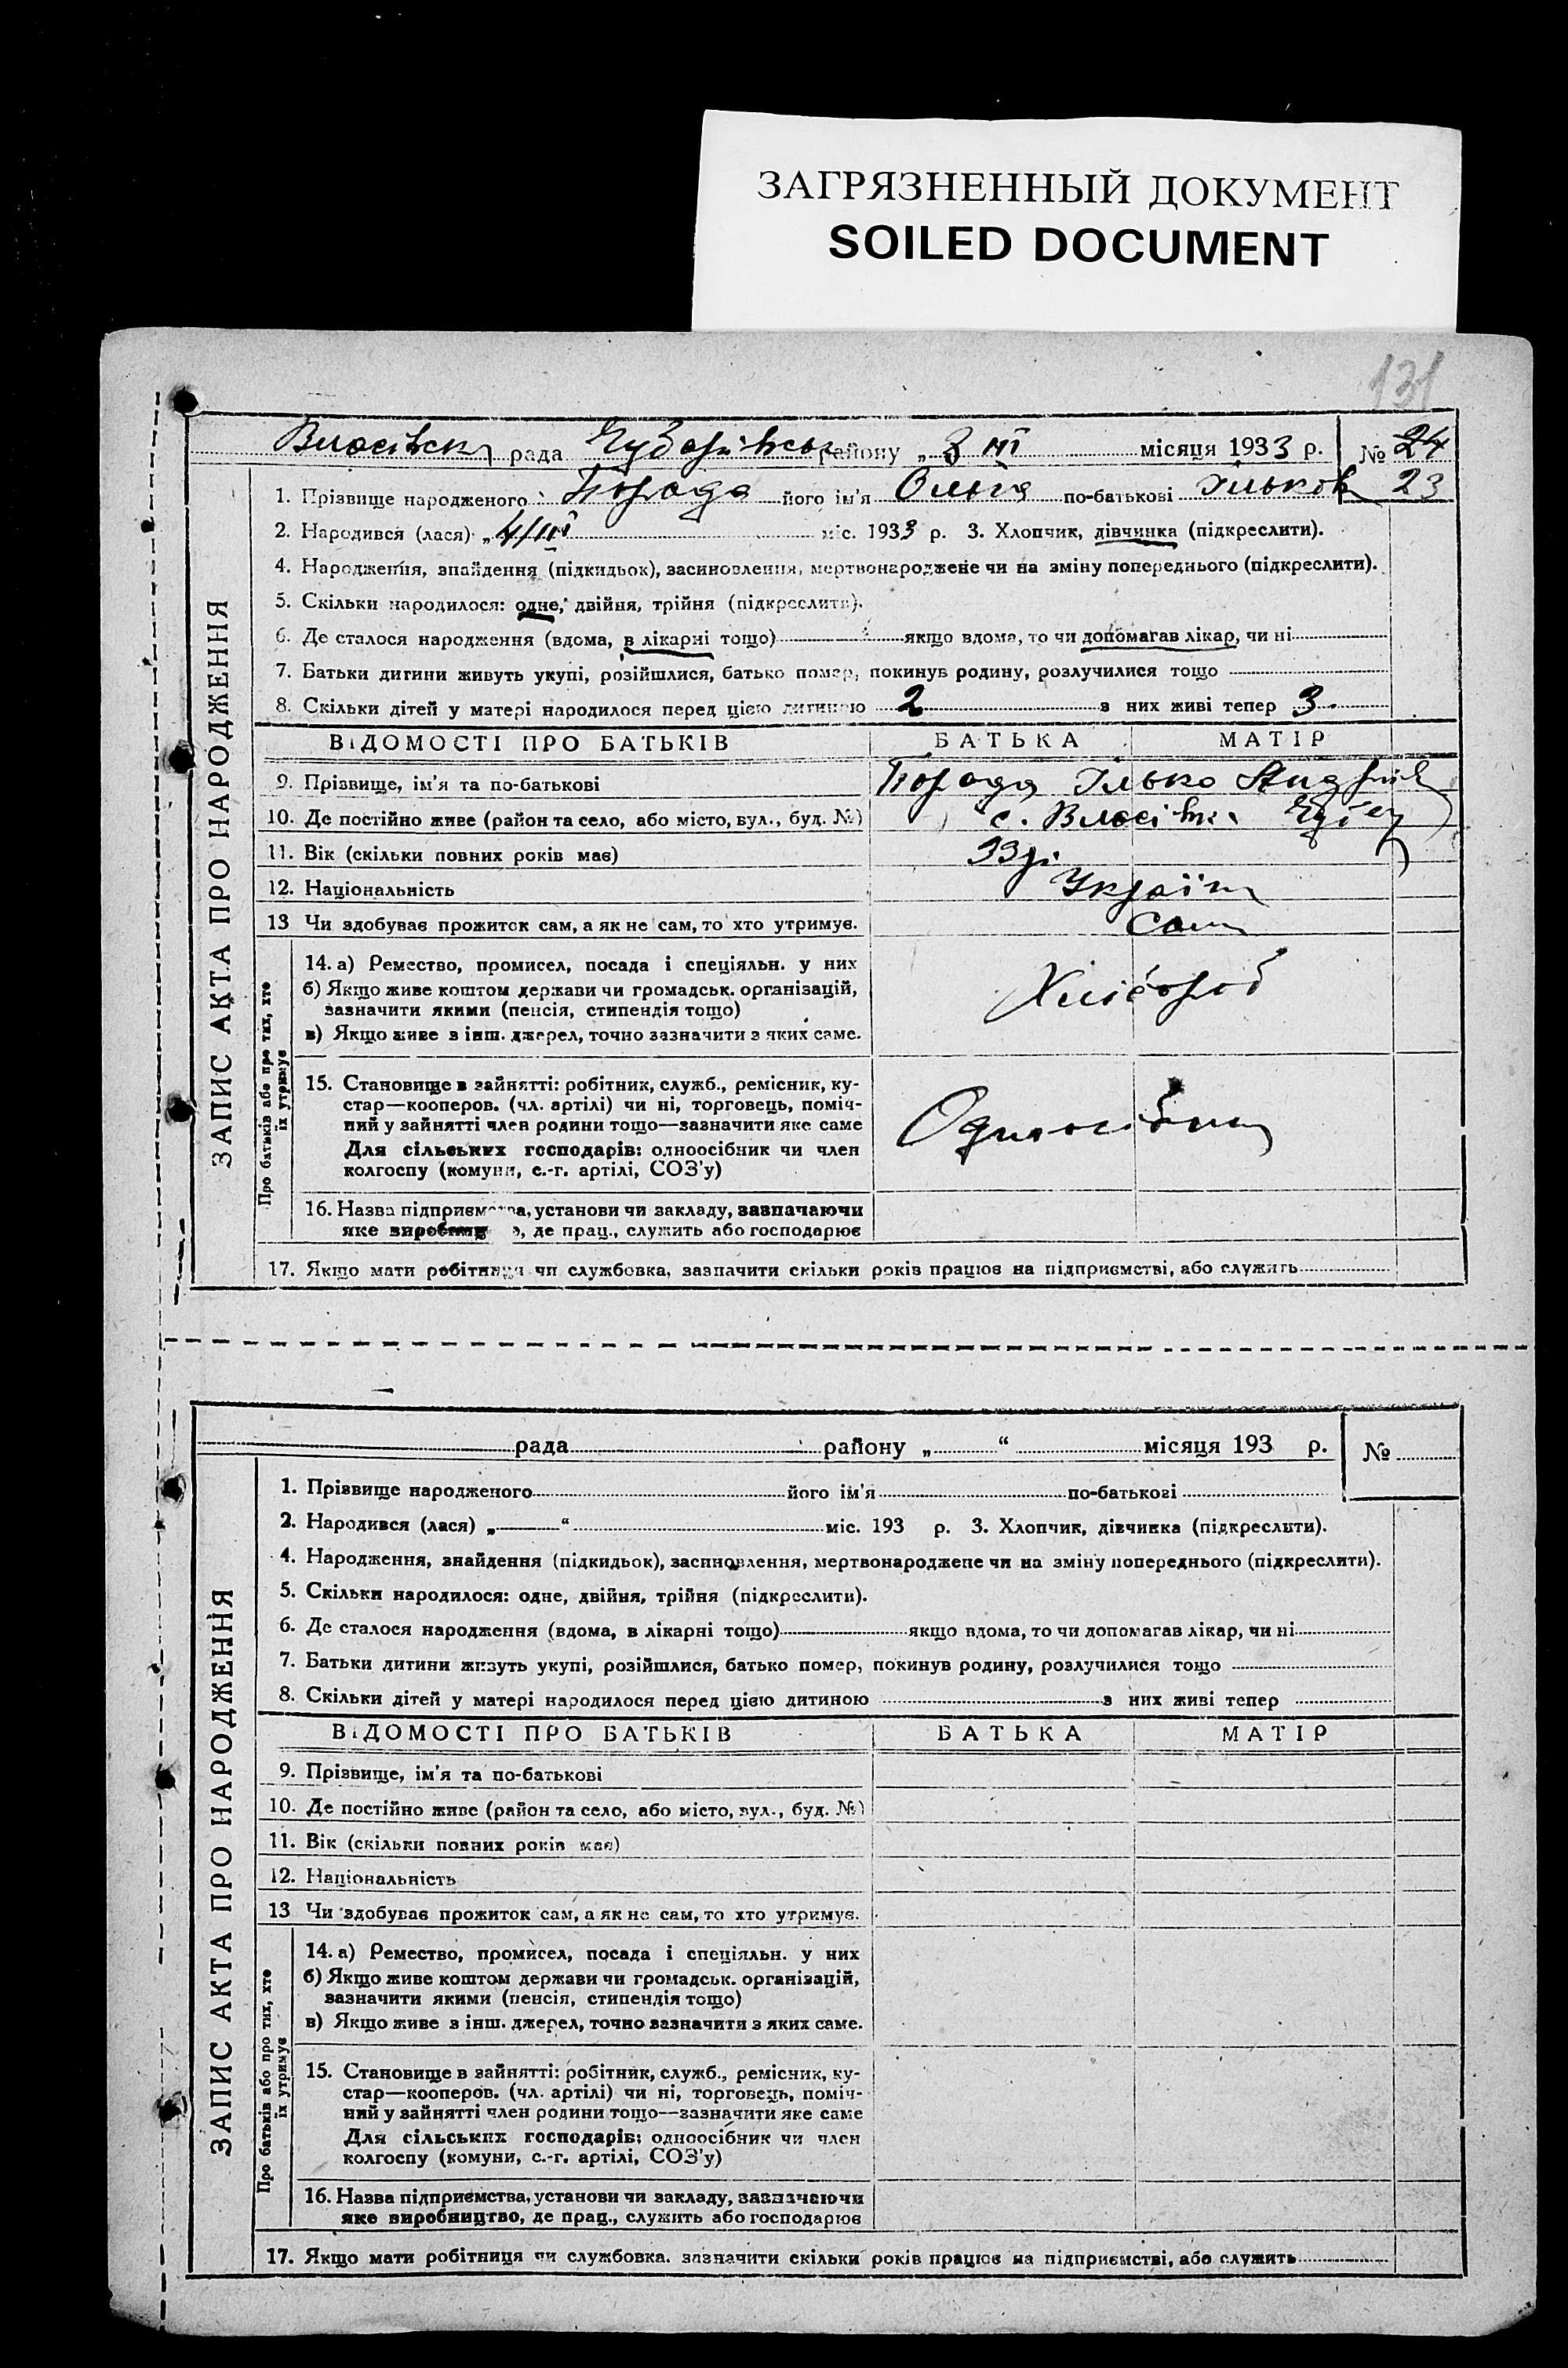 ЗАГРЯЗНЕННЫЙ ДОКУМЕНТ
SOILED DOCUMENT
131
рада району „ 3 III місяця 1933 р. № 24
1. Прізвище народженого Борода його ім'я Ольга по-батькові Ільков 23
2. Народився (лася) „ 4/III міс. 1933 р. 3. Хлопчик, дівчинка (підкреслити).
4. Народження, знайдення (підкидьок), засиновлення, мертвонароджене чи на зміну попереднього (підкреслити).
5. Скільки народилося: одне, двійня, трійня (підкреслити).
6. Де сталося народження (вдома, в лікарні тощо) якщо вдома, то чи допомагав лікар, чи ні
7. Батьки дитини живуть укупі, розійшлися, батько помер, покинув родину, розлучилися тощо
8. Скільки дітей у матері народилося перед цією дитиною 2 з них живі тепер 3
ВІДОМОСТІ ПРО БАТЬКІВ БАТЬКА МАТІР
9. Прізвище, ім'я та по-батькові Борода Ілько Андрій
10. Де постійно живе (район та село, або місто, вул., буд. №) с.
11. Вік (скільки повних років має) 33 р.
12. Національність Україн
13 Чи здобуває прожиток сам, а як не сам, то хто утримує. Сам
14. а) Ремество, промисел, посада і спеціяльн. у них
б) Якщо живе коштом держави чи громадськ. організацій,
зазначити якими (пенсія, стипендія тощо)
в) Якщо живе з інш. джерел, точно зазначити з яких саме.
Хлібороб
15. Становище в зайнятті: робітник, служб., ремісник, ку-
стар—кооперов. (чл. артілі) чи ні, торговець, поміч-
ний у зайнятті член родини тощо—зазначити яке саме
Для сільських господарів: одноосібник чи член
колгоспу (комуни, с.-г. артілі, СОЗ'у)
Одноосібник
16. Назва підприємства, установи чи закладу, зазначаючи
яке виробництво, де прац., служить або господарює
17. Якщо мати робітниця чи службовка, зазначити скільки років працює на підприємстві, або служить
ЗАПИС АКТА ПРО НАРОДЖЕННЯ
Про батьків або про тих, хто
їх утримує
рада району „ “ місяця 193 р. №
1. Прізвище народженого його ім'я по-батькові
2. Народився (лася) „ “ міс. 193 р. 3. Хлопчик, дівчинка (підкреслити).
4. Народження, знайдення (підкидьок), засиновлення, мертвонароджене чи на зміну попереднього (підкреслити).
5. Скільки народилося: одне, двійня, трійня (підкреслити).
6. Де сталося народження (вдома, в лікарні тощо) якщо вдома, то чи допомагав лікар, чи ні
7. Батьки дитини живуть укупі, розійшлися, батько помер, покинув родину, розлучилися тощо
8. Скільки дітей у матері народилося перед цією дитиною з них живі тепер
ВІДОМОСТІ ПРО БАТЬКІВ БАТЬКА МАТІР
9. Прізвище, ім'я та по-батькові
10. Де постійно живе (район та село, або місто, вул., буд. №)
11. Вік (скільки повних років має)
12. Національність
13 Чи здобуває прожиток сам, а як не сам, то хто утримує.
14. а) Ремество, промисел, посада і спеціяльн. у них
б) Якщо живе коштом держави чи громадськ. організацій,
зазначити якими (пенсія, стипендія тощо)
в) Якщо живе з інш. джерел, точно зазначити з яких саме.
15. Становище в зайнятті: робітник, служб., ремісник, ку-
стар—кооперов. (чл. артілі) чи ні, торговець, поміч-
ний у зайнятті член родини тощо—зазначити яке саме
Для сільських господарів: одноосібник чи член
колгоспу (комуни, с.-г. артілі, СОЗ'у)
16. Назва підприємства, установи чи закладу, зазначаючи
яке виробництво, де прац., служить або господарює
17. Якщо мати робітниця чи службовка. зазначити скільки років працює на підприємстві, або служить
ЗАПИС АКТА ПРО НАРОДЖЕННЯ
Про батьків або про тих, хто
їх утримує